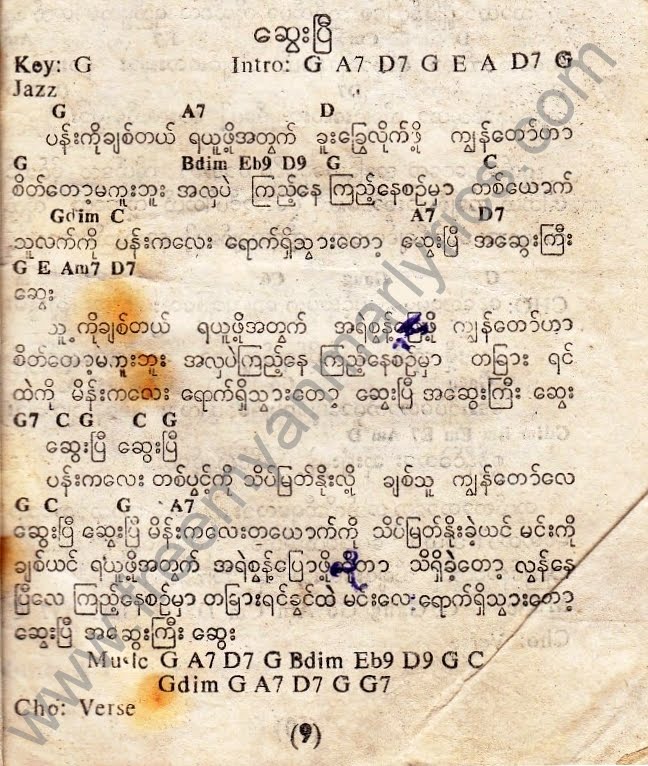 ဆွေးပြီ
Key: G Intro: G A7 D7 G E A D7 G
Jazz
G A7 D
ပန်းကိုချစ်တယ် ရယူဖို့အတွက် ခူးခြွေလိုက်ဖို့ ကျွန်တော်ဟာ
G Bdim Eb9 D9 G C
စိတ်တော့မကူးဘူး အလှပဲ ကြည့်နေ ကြည့်နေစဉ်မှာ တစ်ယောက်
Gdim C A7 D7
သူလက်ကို ပန်းကလေး ရောက်ရှိသွားတော့ ဆွေးပြီ အဆွေးကြီး
G E Am7 D7
ဆွေး
သူ့ကိုချစ်တယ် ရယူဖို့အတွက် အရဲစွန့် ကျွန်တော်ဟာ
စိတ်တော့မကူးဘူး အလှပဲကြည့်နေ ကြည့်နေစဉ်မှာ တခြား ရင်
ထဲကို မိန်းကလေး ရောက်ရှိသွားတော့ ဆွေးပြီ အဆွေးကြီး ဆွေး
G7 C G C G
ဆွေးပြီ ဆွေးပြီ
ပန်းကလေး တစ်ပွင့်ကို သိပ်မြတ်နိုးလို့ ချစ်သူ ကျွန်တော်လေ
G C G A7
ဆွေးပြီ ဆွေးပြီ မိန်းကလေးတယောက်ကို သိပ်မြတ်နိုးခဲ့ယင် မင်းကို
ချစ်ယင် ရယူဖို့အတွက် အရဲစွန့်ပြောဖို့ သိရှိခဲ့တော့ လွန်နေ
ပြီလေ ကြည့်နေစဉ်မှာ တခြားရင်ခွင်ထဲ မင်းလေးရောက်ရှိသွားတော့
ဆွေးပြီ အဆွေးကြီး ဆွေး
Music G A7 D7 G Bdim Eb9 D9 G C
Gdim G A7 D7 G G7
Cho: Verse
(9)
www.freemyanmarlyrics.com